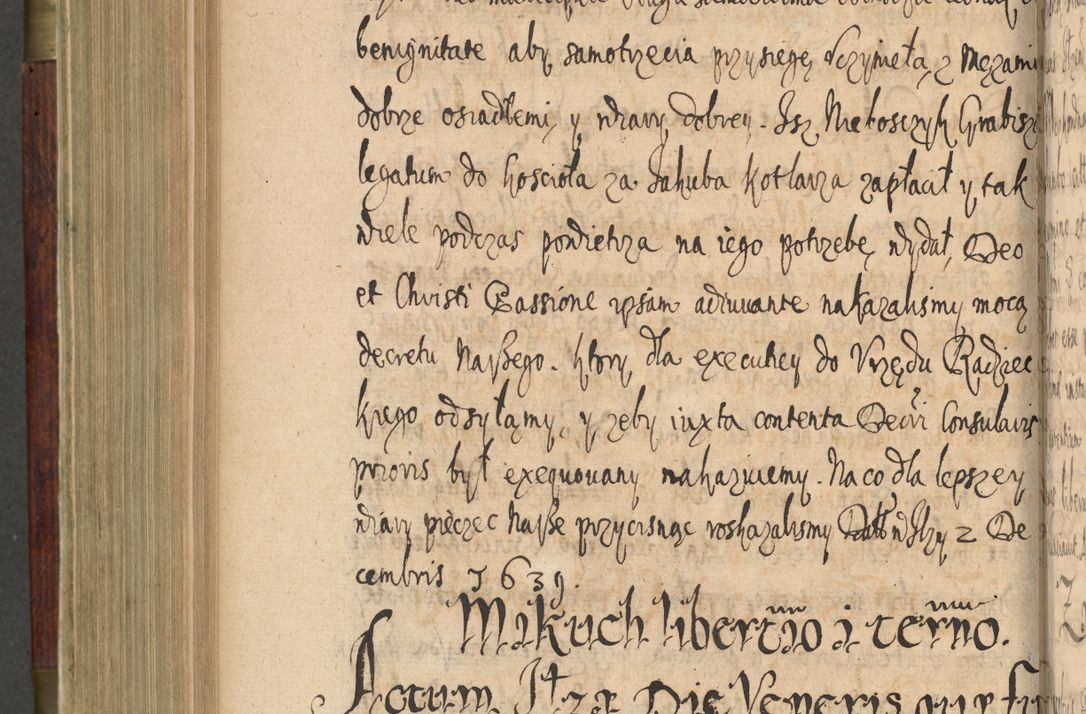 benignitate aby samotrzecia przysięgę vczynieła, z Męzami
dobrze osiadłemi, y wiary dobrey. Isz Miekosczyk Grabisz
legatum do kosciola za Jakuba kotlarza zapłacił y tak
wiele podczas powietrza na iego potrzebę wydał, Deo
et Christi Passione ipsam adiuuante nakazalismy mocą
decretu Naszego. ktory dla executiey do Vrzędu Radziec
kiego odsyłamy, y zeby iuxta contenta Decri Consularis
prioris był exequowany nakazuiemy. Na co dla lepszey
wiary pieczęc Nasze przycisnąc roskazalismy Datt w Ilzy 2 De
cembris 1639.
Mikuch libertino i terno.
Actum Ilza Die Veneris